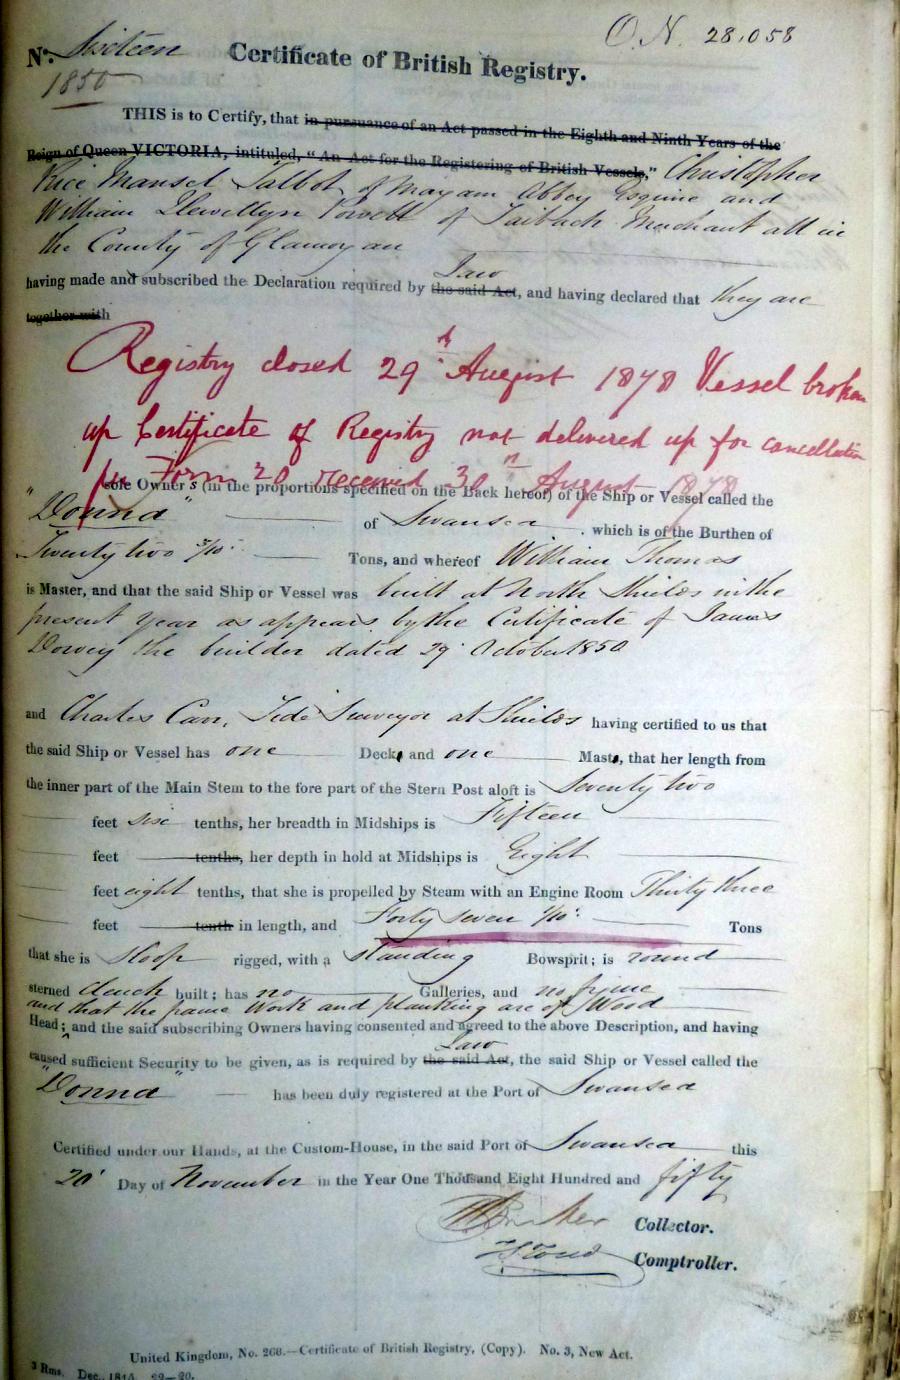 O.N. 28,058
No. Sixteen Certificate of British Registry.
1850
THIS is to Certify, that in pursuance of an Act passed in the Eighth and Ninth Years of the
Reign of Queen VICTORIA, intituled, "An Act for the Registering of British Vessels," Christopher
Rice Mansel Talbot of Margam Abbey Esquire and
William Llewellyn Powell of Taibach Merchant all in
the County of Glamorgan
Law
having made and subscribed the Declaration required by the said Act, and having declared that they are
together with
Registry closed 29th August 1878 Vessel broken
up Certificate of Registry not delivered up for cancellation
per Form 20 received 30th August 1878
sole Owners (in the proportions specified on the Back hereof) of the Ship or Vessel called the
"Donna" of Swansea. which is of the Burthen of
Twenty two 3/10 Tons, and whereof William Thomas
is Master, and that the said Ship or Vessel was built at North Shields in the
present year as appears by the Certificate of James
the builder dated 29 October 1850
and Charles Carr, Tide Surveyor at Shields having certified to us that
the said Ship or Vessel has one Deck, and one Mast, that her length from
the inner part of the Main Stem to the fore part of the Stern Post aloft is Seventy two
feet six tenths, her breadth in Midships is Fifteen
feet tenths, her depth in hold at Midships is Eight
feet eight tenths, that she is propelled by Steam with an Engine Room Thirty three
feet tenth in length, and Forty seven 1/10 Tons
that she is Sloop rigged, with a standing Bowsprit; is round
sterned clench built; has no Galleries, and no figure
and that the frame Work and planking are of Wood
Head; and the said subscribing Owners having consented and agreed to the above Description, and having
Law
caused sufficient Security to be given, as is required by the said Act, the said Ship or Vessel called the
"Donna" has been duly registered at the Port of Swansea
Certified under our Hands, at the Custom-House, in the said Port of Swansea this
20' Day of November in the Year One Thousand Eight Hundred and fifty
Collector.
Comptroller.
United Kingdom, No. 268.—Certificate of British Registry, (Copy). No. 3, New Act.
3 Rms. Dec., 29—20.